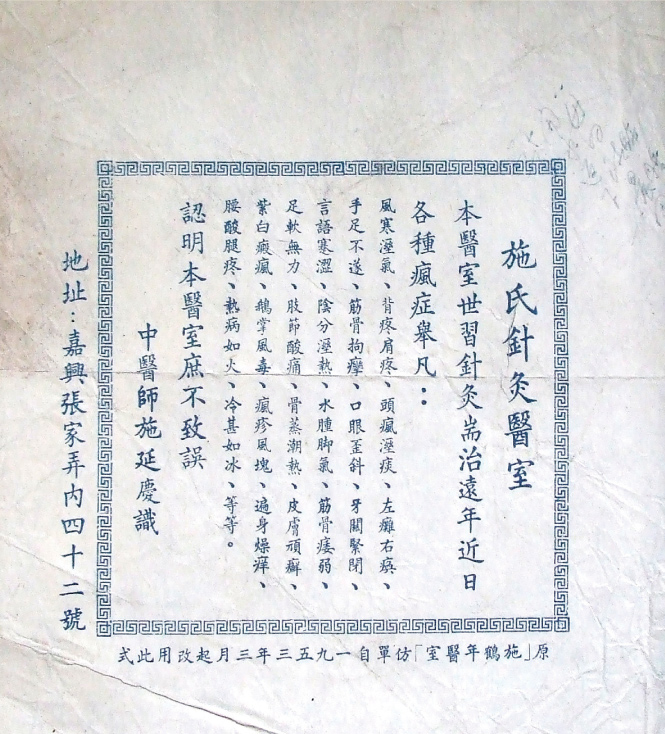 施氏針灸醫室
本醫室世習針灸耑治遠年近日
各種瘋症舉凡：
風寒溼氣、背疼肩疼、頭瘋溼痰、左癱右瘓、
手足不遂、筋骨拘攣、口眼歪斜、牙關緊閉、
言語蹇澀、陰分溼熱、水腫脚氣、筋骨痿弱、
足軟無力、肢節酸痛、骨蒸潮熱、皮膚頑癬、
紫白癜瘋、鵝掌風毒、瘋疹風塊、遍身燥痒、
腰酸腿疼、熱病如火、冷甚如冰、等等。
認明本醫室庶不致誤
中醫師施延慶識
地址：嘉興張家弄內四十二號
原「施鶴年醫室」仿單自一九五三年三月起改用此式